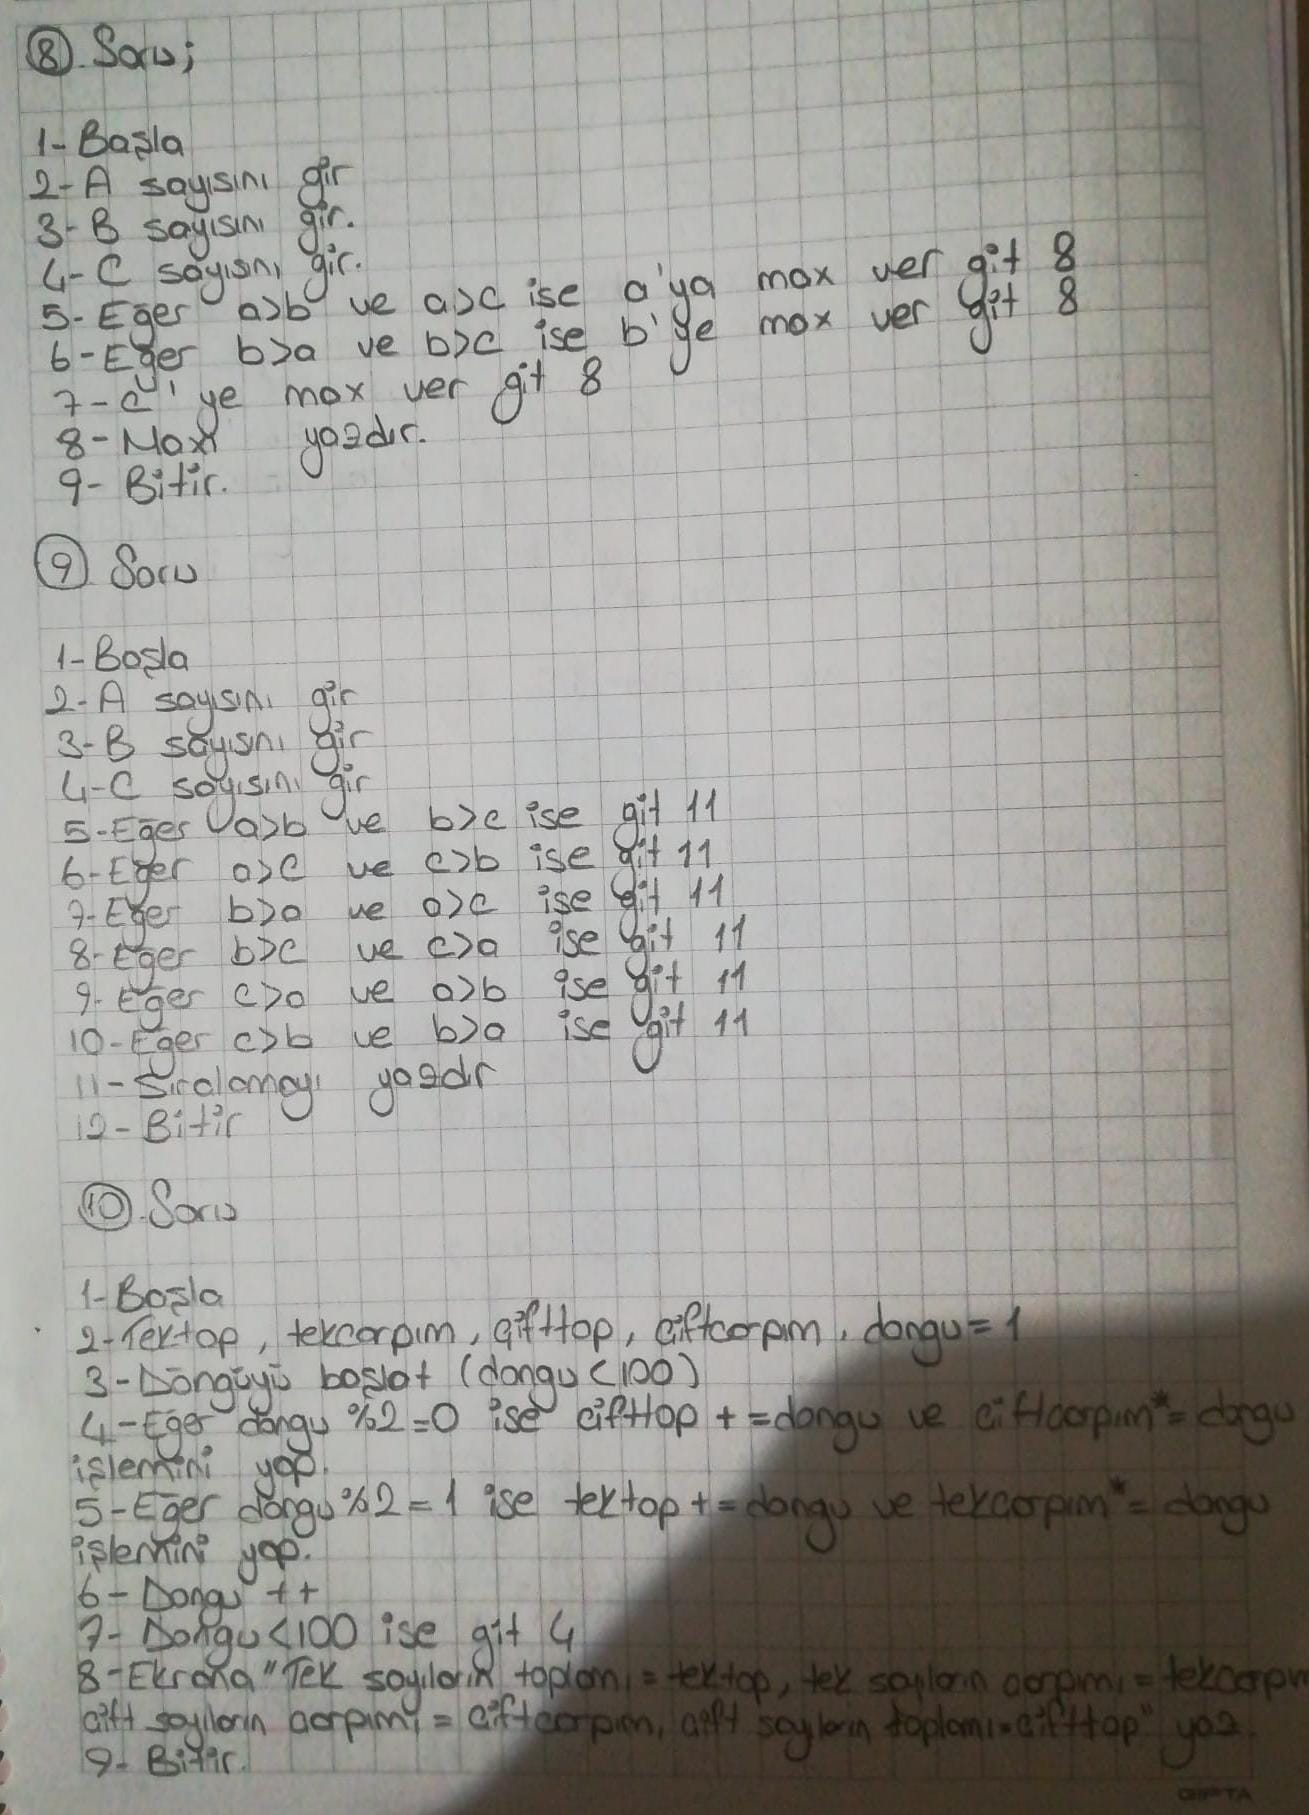 8. Soru;
1- Başla
2- A sayısını gir
3- B sayısını gir.
4- C sayısını gir.
5- Eğer a>b ve a>c ise a'ya max ver git 8
6- Eğer b>a ve b>c ise b'ye max ver git 8
7- C'ye max ver git 8
8- Max yazdır.
9- Bitir.
9 Soru
1- Başla
2- A sayısını gir
3- B sayısını gir
4- C sayısını gir
5- Eğer a>b ve b>c ise git 11
6- Eğer a>c ve c>b ise git 11
7- Eğer b>a ve a>c ise git 11
8- Eğer b>c ve c>a ise git 11
9- Eğer c>a ve a>b ise git 11
10- Eğer c>b ve b>a ise git 11
11- Sıralamayı yazdır
12- Bitir
10. Soru
1- Başla
2- Tektop, tekcarpım, çifttop, çiftcarpım, dongu=1
3- Döngüyü başlat (dongu<100)
4- Eğer dongu %2=0 ise cifttop += dongu ve ciftcarpım*= dongu
işlemini yap.
5- Eğer dongu %2=1 ise tektop += dongu ve tekcarpım*= dongu
işlemini yap.
6- Dongu ++
7- Dongu<100 ise git 4
8- Ekrana "Tek sayıların toplamı = tektop, tek sayıların carpımı = tekcarpım
çift sayıların carpımı = çiftcarpım, çift sayıların toplamı = cifttop" yaz
9- Bitir.
GIPTA